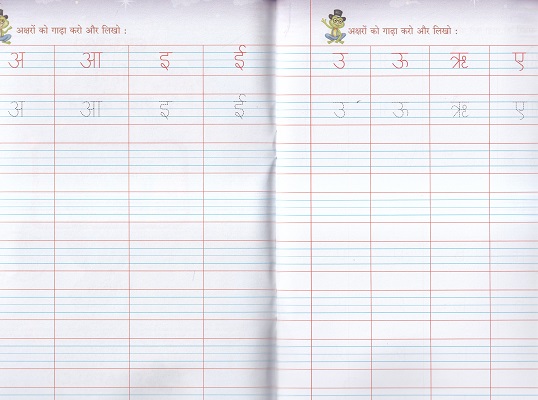 अक्षरों को गाढ़ा करो और लिखो :
अ आ इ ई
अ आ इ ई
अक्षरों को गाढ़ा करो और लिखो :
उ ऊ ऋ ए
उ ऊ ऋ ए